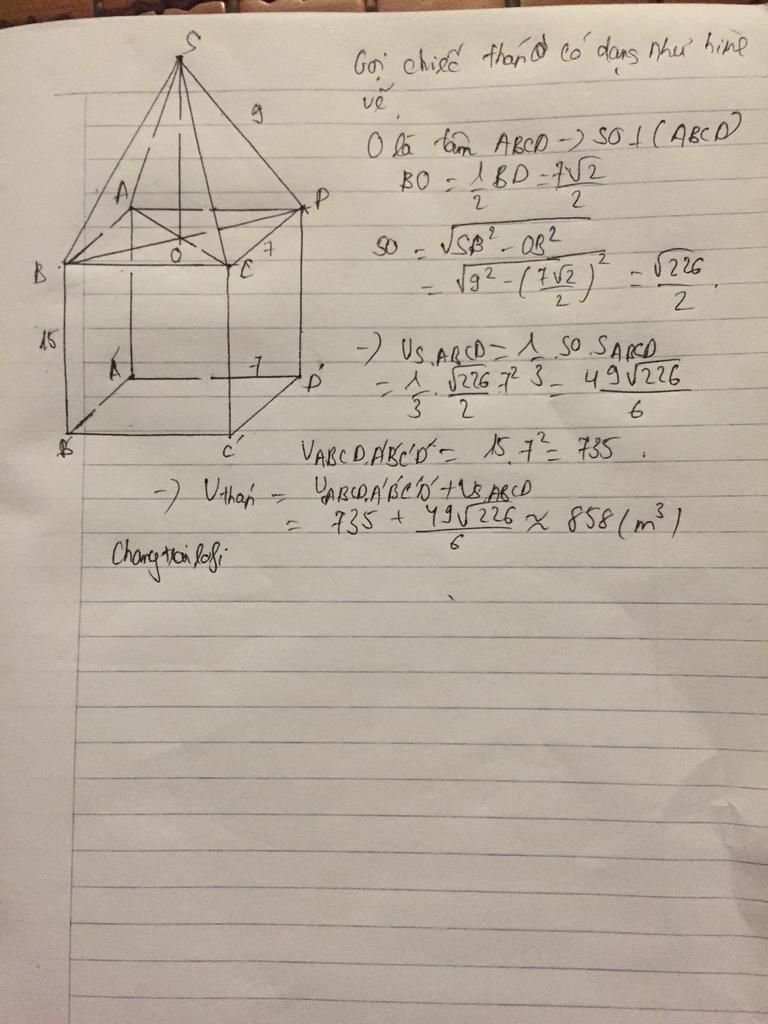 S
9
A
D
O
7
B
C
15
A'
7
D'
B'
C'
Gọi chiếc tháp có dạng như hình
vẽ.
O là tâm ABCD → SO ⊥ (ABCD)
BO = 1/2 BD = 7√2/2
SO = √(SB² - OB²)
= √(9² - (7√2/2)²) = √226/2.
→ VS.ABCD = 1/3 . SO . SABCD
= 1/3 . √226/2 . 7² = 49√226/6
VABCD.A'B'C'D' = 15.7² = 735.
→ Vtháp = VABCD.A'B'C'D' + VS.ABCD
= 735 + 49√226/6 ≈ 858 (m³)